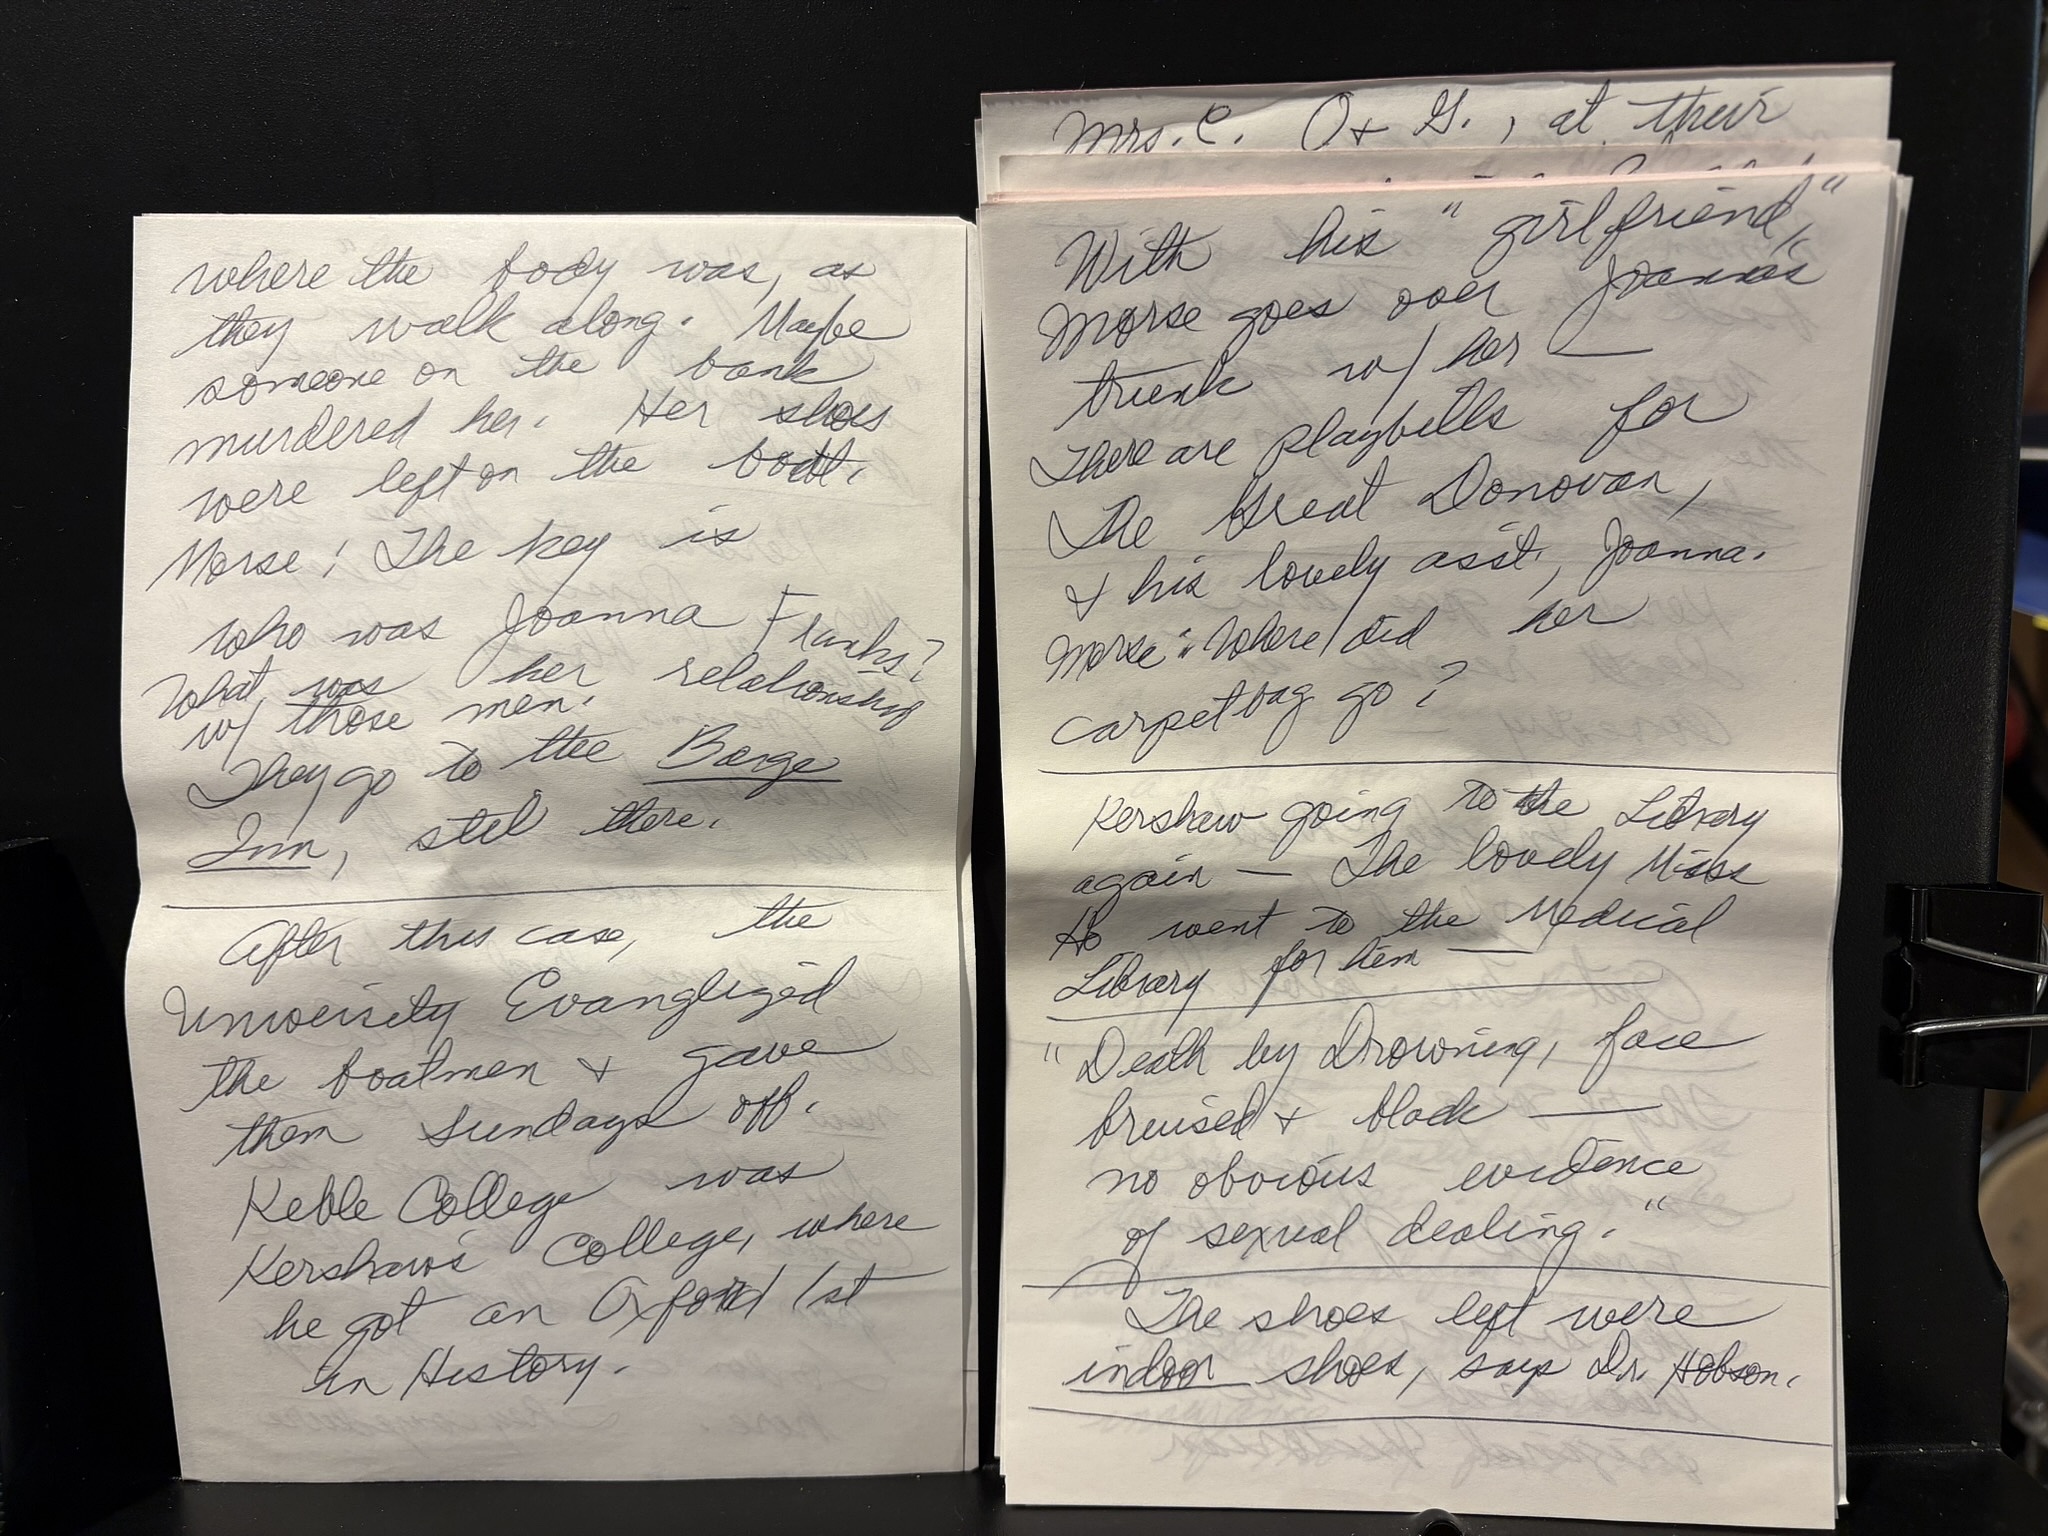 where the body was, as
they walk along. Maybe
someone on the bank
murdered her. Her shoes
were left on the boat.
Morse: The key is
who was Joanna Franks?
What was her relationship
w/ those men.
They go to the Barge
Inn, still there.
After this case, the
University Evanglized
the boatmen & gave
them Sundays off.
Keble College was
Kershaw's College, where
he got an Oxford 1st
in History.
Mrs. C. O & G., at their
With his "girlfriend,"
Morse goes over Joanna's
trunk w/ her —
There are playbills for
The Great Donovan,
& his lovely asst., Joanna.
Morse: "Where did her
carpetbag go?
Kershaw going to the Library
again — The lovely Miss
Ho went to the Medical
Library for him —
"Death by Drowning, face
bruised & black —
no obvious evidence
of sexual dealing."
The shoes left were
indoor shoes, says Dr. Hobson.